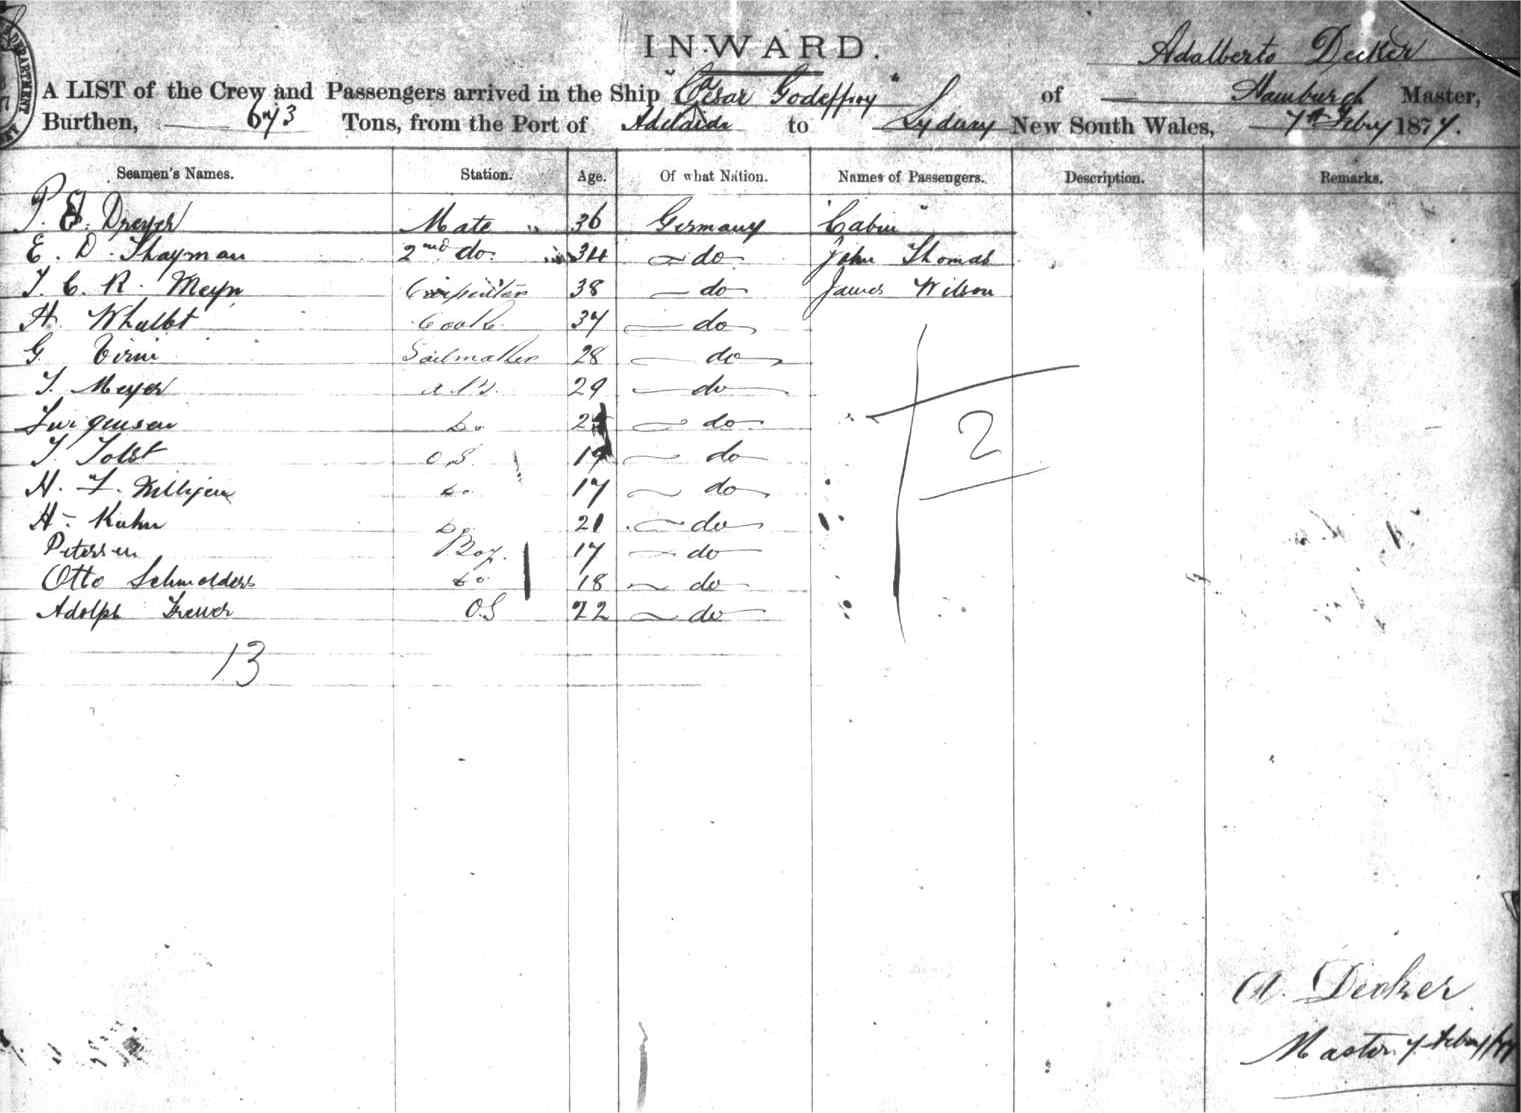 INWARD.
Adalberto Decker
A LIST of the Crew and Passengers arrived in the Ship "Cesar Godeffroy" of Hamburgh Master,
Burthen, 673 Tons, from the Port of Adelaide to Sydney New South Wales, 7th Febry 1877.
Seamen's Names. Station. Age. Of what Nation. Names of Passengers. Description. Remarks.
P. Dreyer Mate 36 Germany Cabin
E. D. Thayman 2nd do. 34 do John Thomas
J. C. R. Meyn Carpenter 38 do James Wilson
H. Cook 37 do
G. Sailmaker 28 do
J. Meyer A.B. 29 do
Jurgensen Do do
J. Tolst O.S. 19 do
H. J. Do 17 do
H. Kuhn Do 21 do
Petersen Boy. 17 do
Otto Schmolders Do 18 do
Adolph O.S 22 do
2
13
A. Decker
Master 7 Febry/77